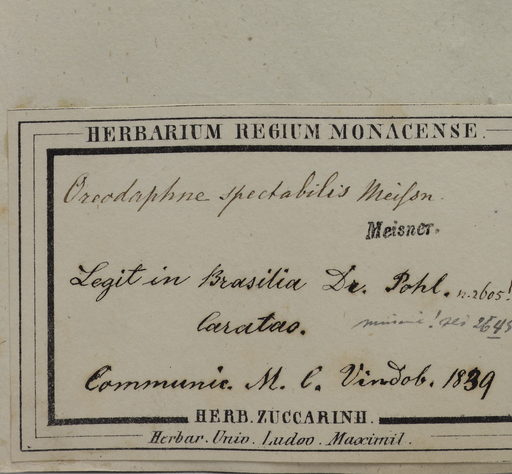 HERBARIUM REGIUM MONACENSE.
Oreodaphne spectabilis Meisſn.
Meisner.
Legit in Brasilia Dr. Pohl. n. 2605!
Caratao.
2645
Communic. M. C. Vindob. 1839
HERB. ZUCCARINII.
Herbar. Univ. Ludov. Maximil.